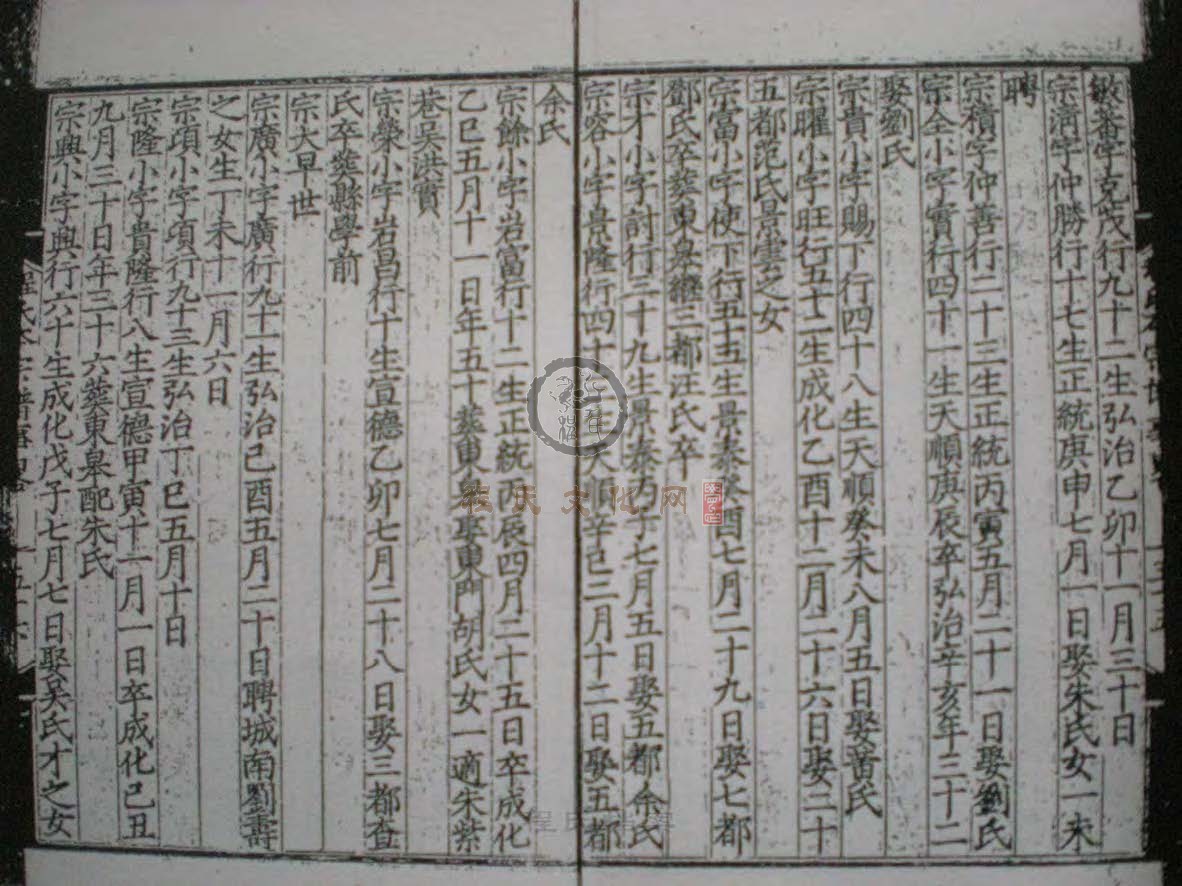 敏蕃字克茂行九十二生弘治乙卯十一月三十日
宗淸字仲勝行十七生正統庚申七月一日娶朱氏女一未
聘
宗積字仲善行二十三生正統丙寅五月二十一日娶劉氏
宗全小字實行四十一生天順庚辰卒弘治辛亥年三十二
娶劉氏
宗貴小字賜下行四十八生天順癸未八月五日娶黃氏
宗曜小字旺行五十二生成化乙酉十二月二十六日娶二十
五都范氏景雲之女
宗富小字使下行五十五生景泰癸酉七月二十九日娶七都
鄧氏卒葬東皋繼三都汪氏卒
宗才小字討行三十九生景泰丙子七月五日娶五都余氏
宗容小字景隆行四十生天順辛巳三月十二日娶五都
余氏
宗餘小字岩富行十二生正統丙辰四月二十五日卒成化
乙巳五月十一日年五十葬東皋娶東門胡氏女一適朱紫
巷吳洪實
宗榮小字岩昌行十生宣德乙卯七月二十八日娶三都查
氏卒葬縣學前
宗大早世
宗廣小字廣行九十一生弘治己酉五月二十日聘城南劉壽
之女生丁未十一月六日
宗項小字項行九十三生弘治丁巳五月十日
宗隆小字貴隆行八生宣德甲寅十一月一日卒成化己丑
九月三十日年三十六葬東皋配朱氏
宗興小字興行六十生成化戊子七月七日娶吳氏才之女
程氏文化网